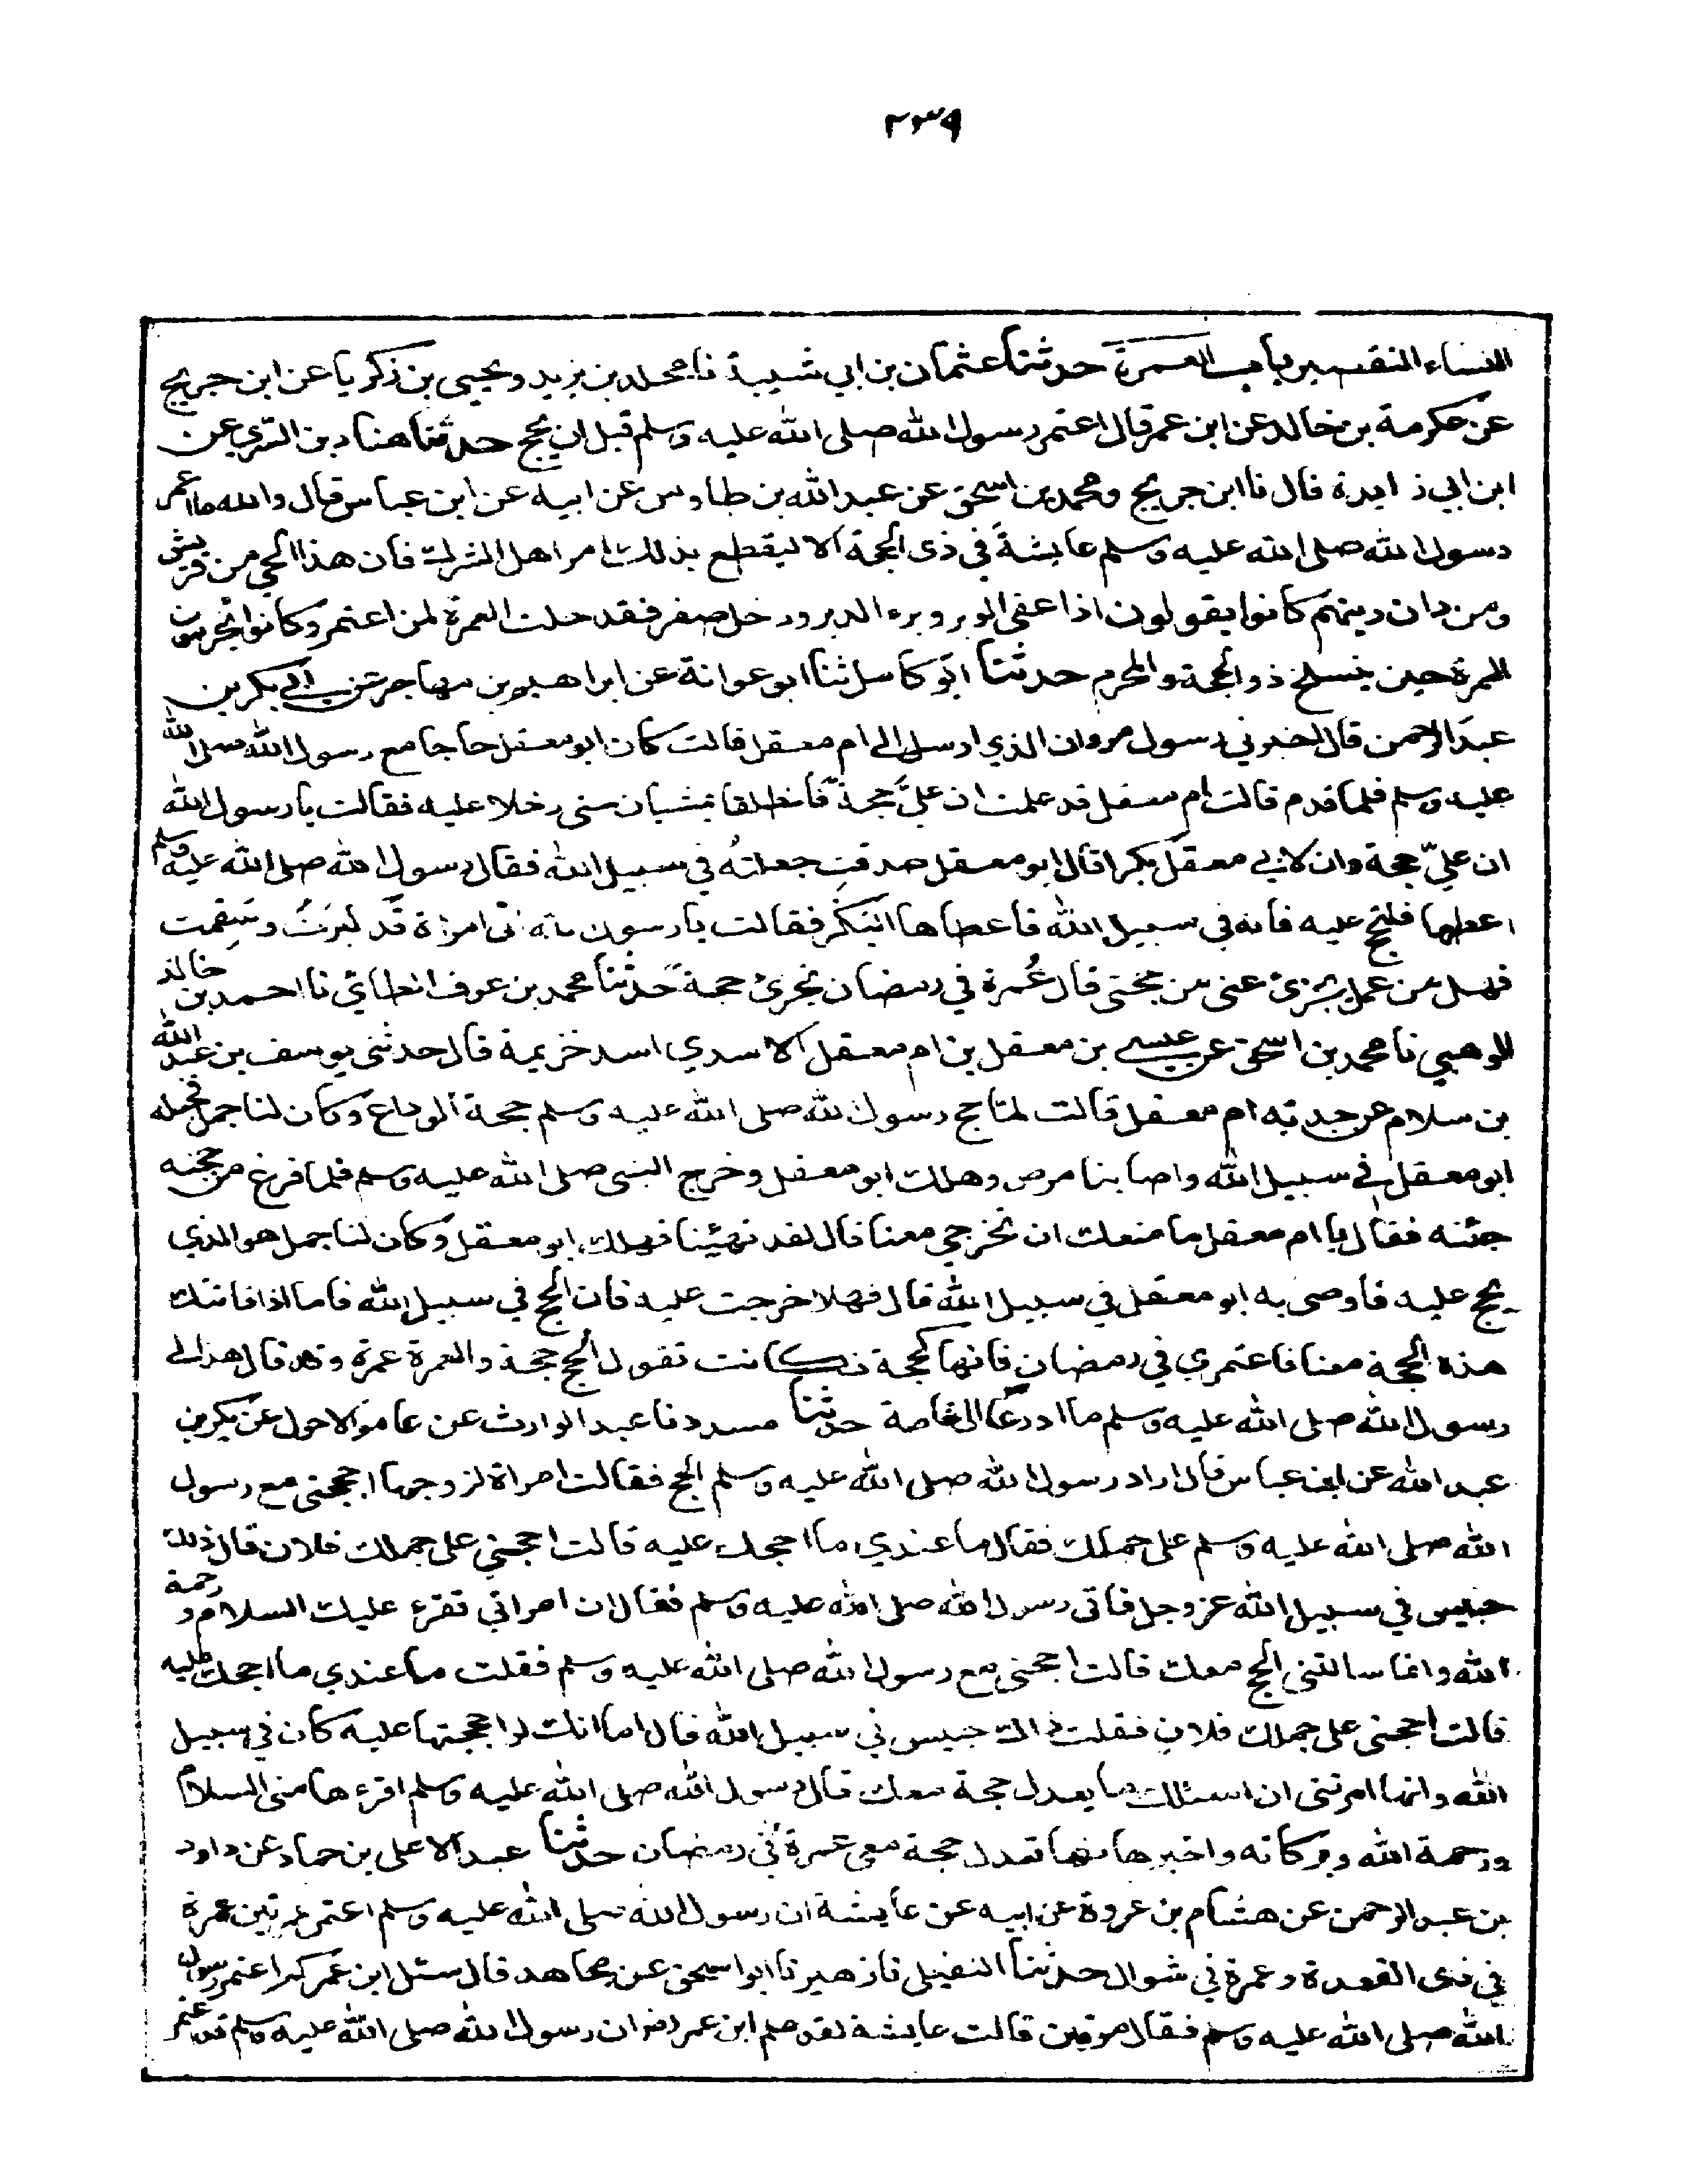 ٢٣٩
النساء التقصير باب العمرة حدثنا عثمان بن ابي شيبة نا مخلد بن يزيد ويحيى بن زكريا عن ابن جريج
عن عكرمة بن خالد عن ابن عمر قال اعتمر رسول الله صلى الله عليه وسلم قبل ان يحج حدثنا هناد بن السري عن
ابن ابي زايدة قال نا ابن جريج ومحمد بن اسحق عن عبد الله بن طاوس عن ابيه عن ابن عباس قال والله ما اعمر
رسول الله صلى الله عليه وسلم عايشة في ذي الحجة الا ليقطع بذلك امر اهل الشرك فان هذا الحي من قريش
ومن دان دينهم كانوا يقولون اذا عفى الوبر وبرء الدبر ودخل صفر فقد حلت العمرة لمن اعتمر وكانوا يحرمون
العمرة حين ينسلخ ذو الحجة والمحرم حدثنا ابو كامل ثنا ابو عوانة عن ابراهيم بن مهاجر عن ابي بكر بن
عبد الرحمن قال اخبرني رسول مروان الذي ارسل الى ام معقل قالت كان ابو معقل حاجا مع رسول الله صلى الله
عليه وسلم فلما قدم قالت ام معقل قد علمت ان عليَّ حجة فانطلقا يمشيان حتى دخلا عليه فقالت يا رسول الله
ان عليّ حجة وان لابي معقل بكرا قال ابو معقل صدقت جعلتُه في سبيل الله فقال رسول الله صلى الله عليه وسلم
اعطها فلتحج عليه فانه في سبيل الله فاعطاها البكر فقالت يا رسول الله اني امراة قد كبرتُ وسَقِمت
فهل من عمل يجزئ عني من حجتي قال عُمرة في رمضان تجزئ حجة حدثنا محمد بن عوف الطائي نا احمد بن خالد
الوهبي نا محمد بن اسحق عن عيسى بن معقل بن ام معقل الاسدي اسد خزيمة قال حدثني يوسف بن عبد الله
بن سلام عن جدته ام معقل قالت لما حج رسول الله صلى الله عليه وسلم حجة الوداع وكان لنا جمل فجعله
ابو معقل في سبيل الله واصابنا مرض وهلك ابو معقل وخرج النبي صلى الله عليه وسلم فلما فرغ من حجته
جئته فقال يا ام معقل ما منعك ان تخرجي معنا قال لقد تهيئنا فهلك ابو معقل وكان لنا جمل هو الذي
يحج عليه فاوصى به ابو معقل في سبيل الله قال فهلا خرجت عليه فان الحج في سبيل الله فاما اذا فاتتك
هذه الحجة معنا فاعتمري في رمضان فانها كحجة فكانت تقول الحج حجة والعمرة عمرة وقد قال هذا لي
رسول الله صلى الله عليه وسلم ما ادري الي خاصة حدثنا مسدد نا عبد الوارث عن عامر الاحول عن بكر بن
عبد الله عن ابن عباس قال اراد رسول الله صلى الله عليه وسلم الحج فقالت امراة لزوجها احججني مع رسول
الله صلى الله عليه وسلم على جملك فقال ما عندي ما احجك عليه قالت احجني على جملك فلان قال ذلك
حبيس في سبيل الله عز وجل فاتى رسول الله صلى الله عليه وسلم فقال ان امراتي تقرء عليك السلام ورحمة
الله وانها سالتني الحج معك قالت احجني مع رسول الله صلى الله عليه وسلم فقلت ما عندي ما احجك عليه
قالت احجني على جملك فلان فقلت ذلك حبيس في سبيل الله قال اما انك لو احججتها عليه كان في سبيل
الله وانها امرتني ان اسئلك ما يعدل حجة معك قال رسول الله صلى الله عليه وسلم اقرءها مني السلام
ورحمة الله وبركاته واخبرها انها تعدل حجة معي عمرة في رمضان حدثنا عبد الاعلى بن حماد عن داود
بن عبد الرحمن عن هشام بن عروة عن ابيه عن عايشة ان رسول الله صلى الله عليه وسلم اعتمر عمرتين عمرة
في ذى القعدة وعمرة في شوال حدثنا النفيلي نا زهير نا ابو اسحق عن مجاهد قال سئل ابن عمر كم اعتمر رسول
الله صلى الله عليه وسلم فقال مرتين قالت عايشة لقد علم ابن عمر ان رسول الله صلى الله عليه وسلم قد اعتمر